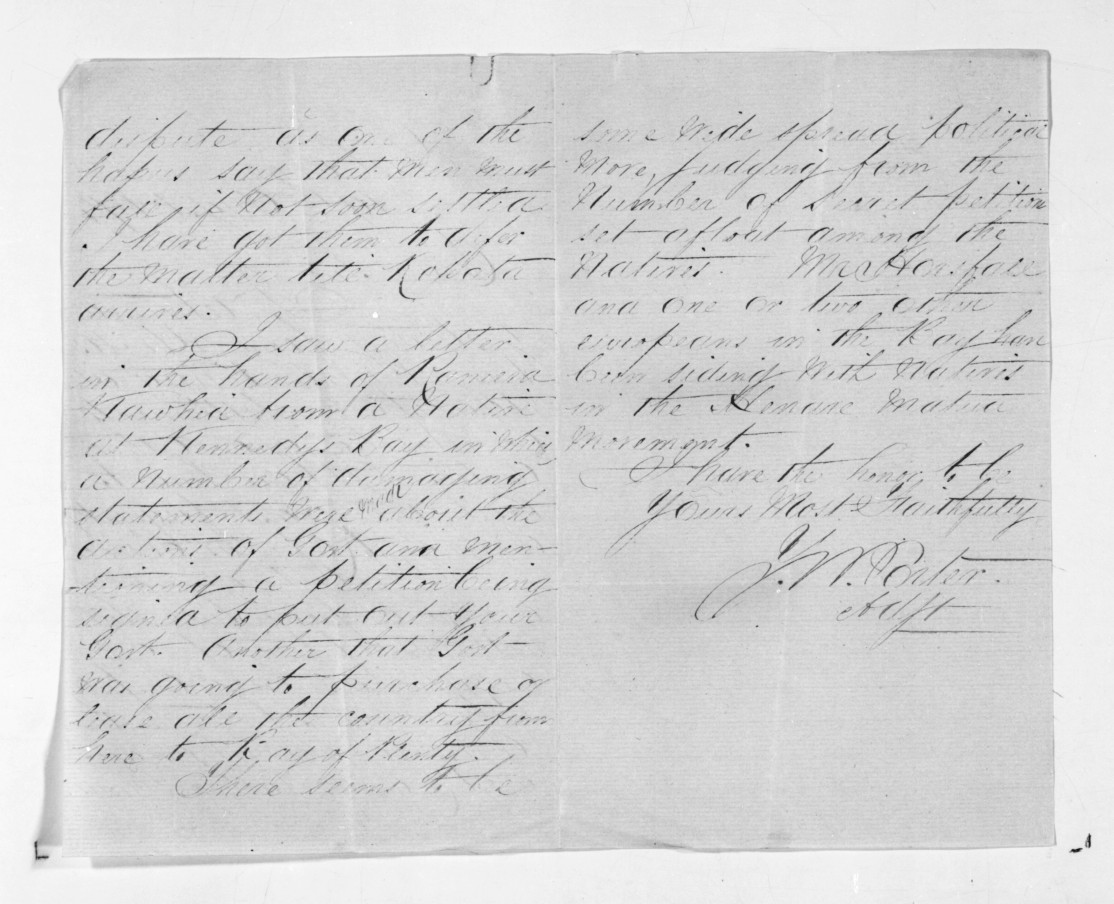 dispute as one of the
hapus say that men must
fall if not soon settled
I have got them to defer
the matter till Kebata
arrives.
I saw a letter
in the hands of Ramiera
Kawhia from a Native
at Kennedys Bay in which
a number of damaging
statements were made about the
actions of Govt and men-
tioning a petition being
signed to put out your
Govt. Another that Govt
was going to purchase or
lease all the country from
here to Bay of Plenty.
There seems to be
some wide spread political
move, judging from the
number of secret petitions
set afloat among the
Natives. Mr Horsfall
and one or two other
europeans in the Bay have
been siding with Natives
in the Henare Matua
movement.
I have the honor to be
Yours Most Faithfully
J. W. Porter.
Adjt